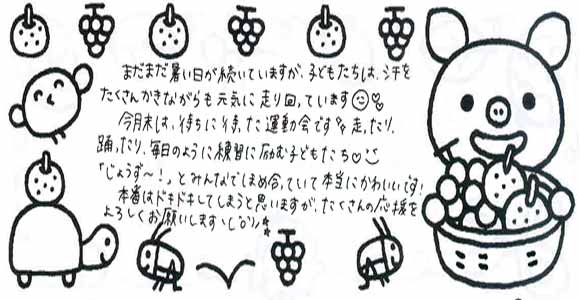 まだまだ暑い日が続いていますが、子どもたちは、汗を
たくさんかきながらも元気に走り回っています
今月末は、待ちに待った運動会です 走ったり、
踊ったり、毎日のように練習に励む子どもたち♡
「じょうず〜！」とみんなでほめ合っていて本当にかわいいです！
本番はドキドキしてしまうと思いますが、たくさんの応援を
よろしくお願いします